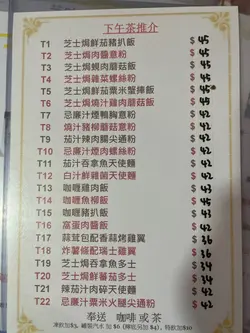 下午茶推介
T1 芝士焗鮮茄豬扒飯 $45
T2 芝士焗肉醬意粉 $45
T3 芝士焗蜆肉蘑菇飯 $45
T4 芝士焗雜菜螺絲粉 $45
T5 芝士焗鮮茄粟米蟹棒飯 $45
T6 芝士焗燒汁雞肉蘑菇飯 $45
T7 忌廉汁煙鴨胸意粉 $42
T8 燒汁豬柳蘑菇意粉 $42
T9 茄汁辣肉腸尖通粉 $42
T10 忌廉汁煙肉螺絲粉 $42
T11 茄汁吞拿魚天使麵 $42
T12 白汁鮮雜菌天使麵 $42
T13 咖喱雞肉飯 $42
T14 咖喱魚柳飯 $42
T15 咖喱豬扒飯 $42
T16 富蛋肉醬飯 $42
T17 蒜茸包配香蒜烤雞翼 $36
T18 炸薯條配瑞士雞翼 $36
T19 芝士焗吞拿魚多士 $36
T20 芝士焗鮮蕃茄多士 $36
T21 辣茄汁肉碎天使麵 $42
T22 忌廉汁粟米火腿尖通粉 $42
奉送 咖啡 或 茶
凍飲加$3, 罐裝汽水 加 $6